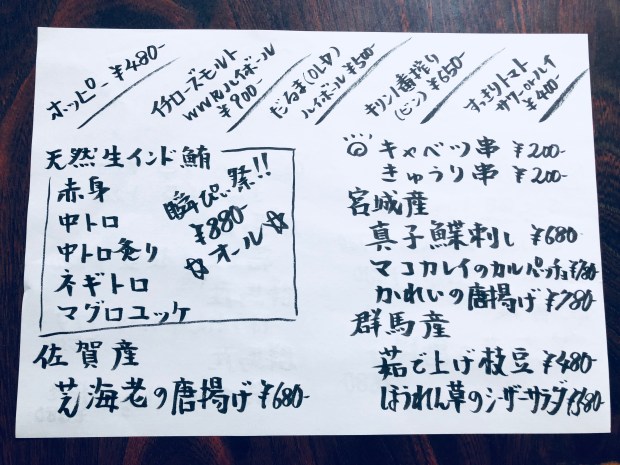 ホッピー ¥480-
イチローズモルト
WWRハイボール
¥900-
だるま(OLD)
ハイボール ¥500-
キリン一番搾り
(ビン) ¥650-
すっきりトマト
サワーorハイ
¥480-
天然生インド鮪
赤身
中トロ
中トロ炙り
ネギトロ
マグロユッケ
祭!!
¥880-
☆オール☆
佐賀産
芝海老の唐揚げ ¥680-
◎キャベツ串 ¥200-
きゅうり串 ¥200-
宮城産
真子鰈刺し ¥680-
マコカレイのカルパッチョ ¥780-
かれいの唐揚げ ¥780-
群馬産
茹で上げ枝豆 ¥480-
ほうれん草のシーザーサラダ ¥580-